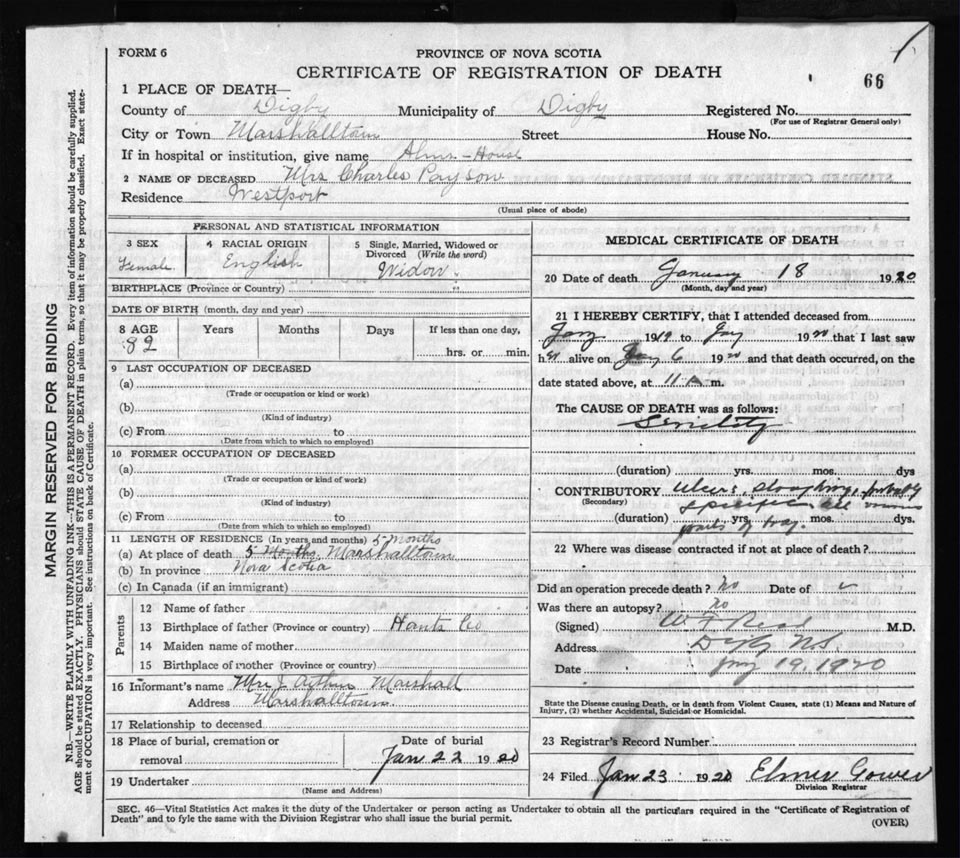 FORM 6
PROVINCE OF NOVA SCOTIA
CERTIFICATE OF REGISTRATION OF DEATH
66
1 PLACE OF DEATH—
County of Digby Municipality of Digby Registered No.
(For use of Registrar General only)
City or Town Marshalltown Street House No.
If in hospital or institution, give name Alms-House
2 NAME OF DECEASED Mrs Charles Payson
Residence Westport
(Usual place of abode)
PERSONAL AND STATISTICAL INFORMATION
3 SEX
Female
4 RACIAL ORIGIN
English
5 Single, Married, Widowed or
Divorced (Write the word)
Widow.
BIRTHPLACE (Province or Country)
DATE OF BIRTH (month, day and year)
8 AGE Years Months Days If less than one day,
82
hrs. or min.
9 LAST OCCUPATION OF DECEASED
(a)
(Trade or occupation or kind or work)
(b)
(Kind of industry)
(c) From to
(Date from which to which so employed)
10 FORMER OCCUPATION OF DECEASED
(a)
(Trade or occupation or kind of work)
(b)
(Kind of industry)
(c) From to
(Date from which to which so employed)
11 LENGTH OF RESIDENCE (In years and months) 5 Months
(a) At place of death 5 Months. Marshalltown
(b) In province Nova Scotia
(c) In Canada (if an immigrant)
Parents
12 Name of father
13 Birthplace of father (Province or country) Hants Co
14 Maiden name of mother
15 Birthplace of mother (Province or country)
16 Informant's name Mrs J Arthur Marshall
Address Marshalltown
17 Relationship to deceased
18 Place of burial, cremation or
removal
Date of burial
Jan 22 1920
19 Undertaker
(Name and Address)
MEDICAL CERTIFICATE OF DEATH
20 Date of death January 18 1920
(Month, day and year)
21 I HEREBY CERTIFY, that I attended deceased from
1919 to 19 that I last saw
h alive on 6 19 and that death occurred, on the
date stated above, at 11 m.
The CAUSE OF DEATH was as follows:
Senility
(duration) yrs. mos. dys
CONTRIBUTORY Ulcers, sloughing, probably
(Secondary) specific all
(duration) yrs. mos. dys.
parts of
22 Where was disease contracted if not at place of death?
Did an operation precede death? no Date of
Was there an autopsy? no
(Signed) W F Read M.D.
Address Digby N.S.
Date 19, 1920
State the Disease causing Death, or in death from Violent Causes, state (1) Means and Nature of
Injury, (2) whether Accidental, Suicidal or Homicidal.
23 Registrar's Record Number
24 Filed Jan 23 1920 Elmer Gower
Division Registrar
SEC. 46—Vital Statistics Act makes it the duty of the Undertaker or person acting as Undertaker to obtain all the particulars required in the "Certificate of Registration of
Death" and to fyle the same with the Division Registrar who shall issue the burial permit.
(OVER)
MARGIN RESERVED FOR BINDING
N.B.—WRITE PLAINLY WITH UNFADING INK—THIS IS A PERMANENT RECORD. Every item of information should be carefully supplied.
AGE should be stated EXACTLY. PHYSICIANS should STATE CAUSE OF DEATH in plain terms, so that it may be properly classified. Exact state-
ment of OCCUPATION is very important. See instructions on back of Certificate.